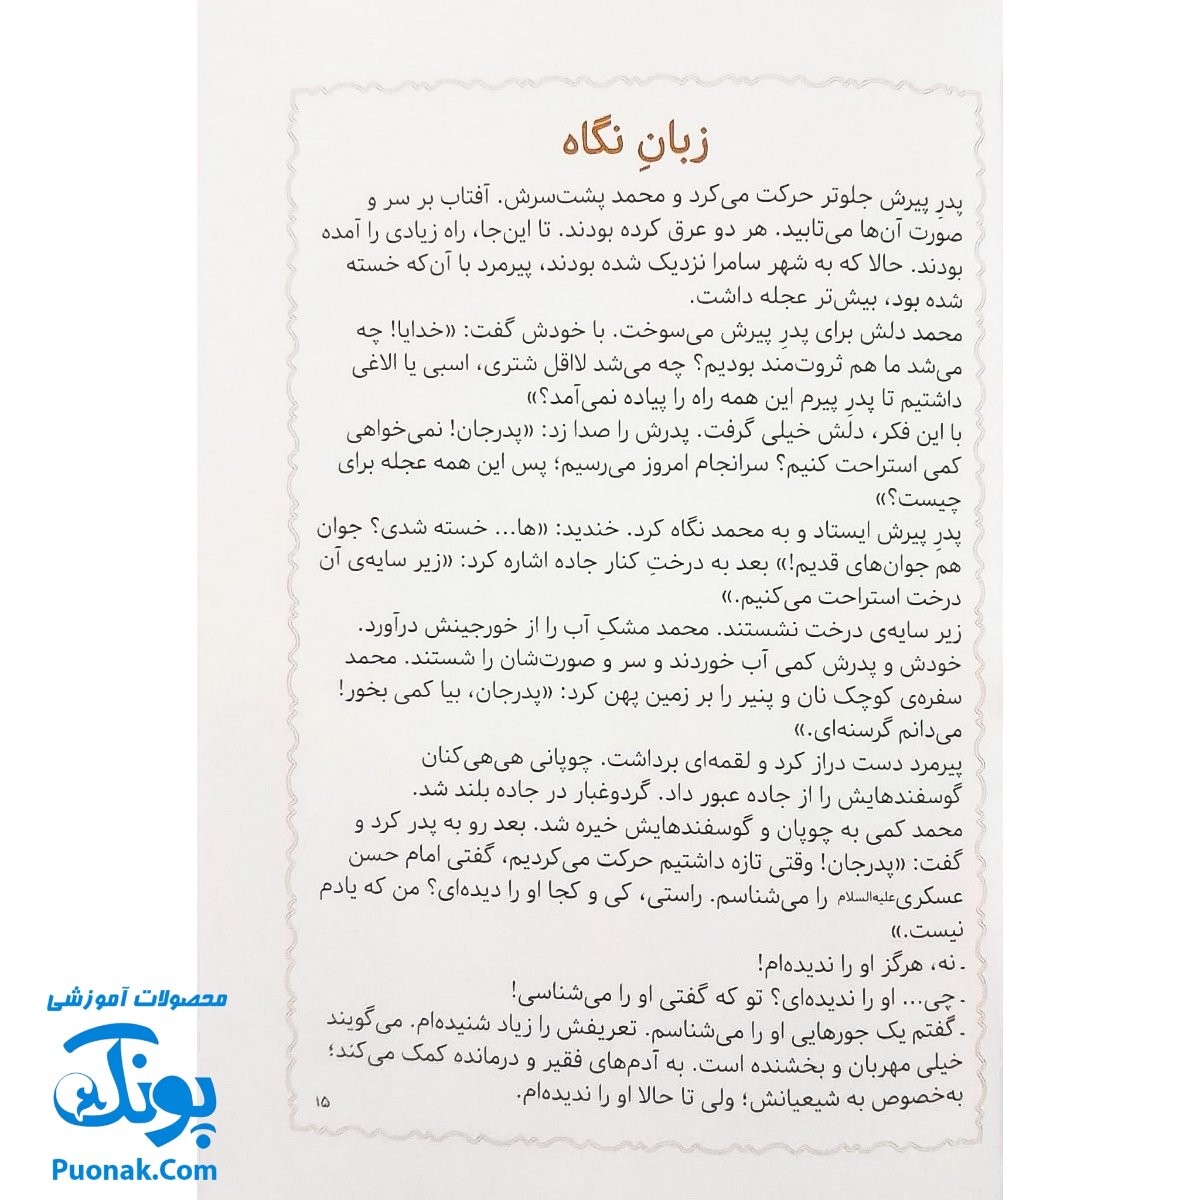 زبانِ نگاه
پدرِ پیرش جلوتر حرکت می‌کرد و محمد پشت‌سرش. آفتاب بر سر و
صورت آن‌ها می‌تابید. هر دو عرق کرده بودند. تا این‌جا، راه زیادی را آمده
بودند. حالا که به شهر سامرا نزدیک شده بودند، پیرمرد با آن‌که خسته
شده بود، بیش‌تر عجله داشت.
محمد دلش برای پدرِ پیرش می‌سوخت. با خودش گفت: «خدایا! چه
می‌شد ما هم ثروت‌مند بودیم؟ چه می‌شد لااقل شتری، اسبی یا الاغی
داشتیم تا پدرِ پیرم این همه راه را پیاده نمی‌آمد؟»
با این فکر، دلش خیلی گرفت. پدرش را صدا زد: «پدرجان! نمی‌خواهی
کمی استراحت کنیم؟ سرانجام امروز می‌رسیم؛ پس این همه عجله برای
چیست؟»
پدرِ پیرش ایستاد و به محمد نگاه کرد. خندید: «ها... خسته شدی؟ جوان
هم جوان‌های قدیم!» بعد به درختِ کنار جاده اشاره کرد: «زیر سایه‌ی آن
درخت استراحت می‌کنیم.»
زیر سایه‌ی درخت نشستند. محمد مشکِ آب را از خورجینش درآورد.
خودش و پدرش کمی آب خوردند و سر و صورت‌شان را شستند. محمد
سفره‌ی کوچک نان و پنیر را بر زمین پهن کرد: «پدرجان، بیا کمی بخور!
می‌دانم گرسنه‌ای.»
پیرمرد دست دراز کرد و لقمه‌ای برداشت. چوپانی هی‌هی‌کنان
گوسفندهایش را از جاده عبور داد. گردوغبار در جاده بلند شد.
محمد کمی به چوپان و گوسفندهایش خیره شد. بعد رو به پدر کرد و
گفت: «پدرجان! وقتی تازه داشتیم حرکت می‌کردیم، گفتی امام حسن
عسکری علیه‌السلام را می‌شناسم. راستی، کی و کجا او را دیده‌ای؟ من که یادم
نیست.»
ـ نه، هرگز او را ندیده‌ام!
ـ چی... او را ندیده‌ای؟ تو که گفتی او را می‌شناسی!
ـ گفتم یک جورهایی او را می‌شناسم. تعریفش را زیاد شنیده‌ام. می‌گویند
خیلی مهربان و بخشنده است. به آدم‌های فقیر و درمانده کمک می‌کند؛
به‌خصوص به شیعیانش؛ ولی تا حالا او را ندیده‌ام.
۱۵
محصولات آموزشی
پونک
Puonak.Com